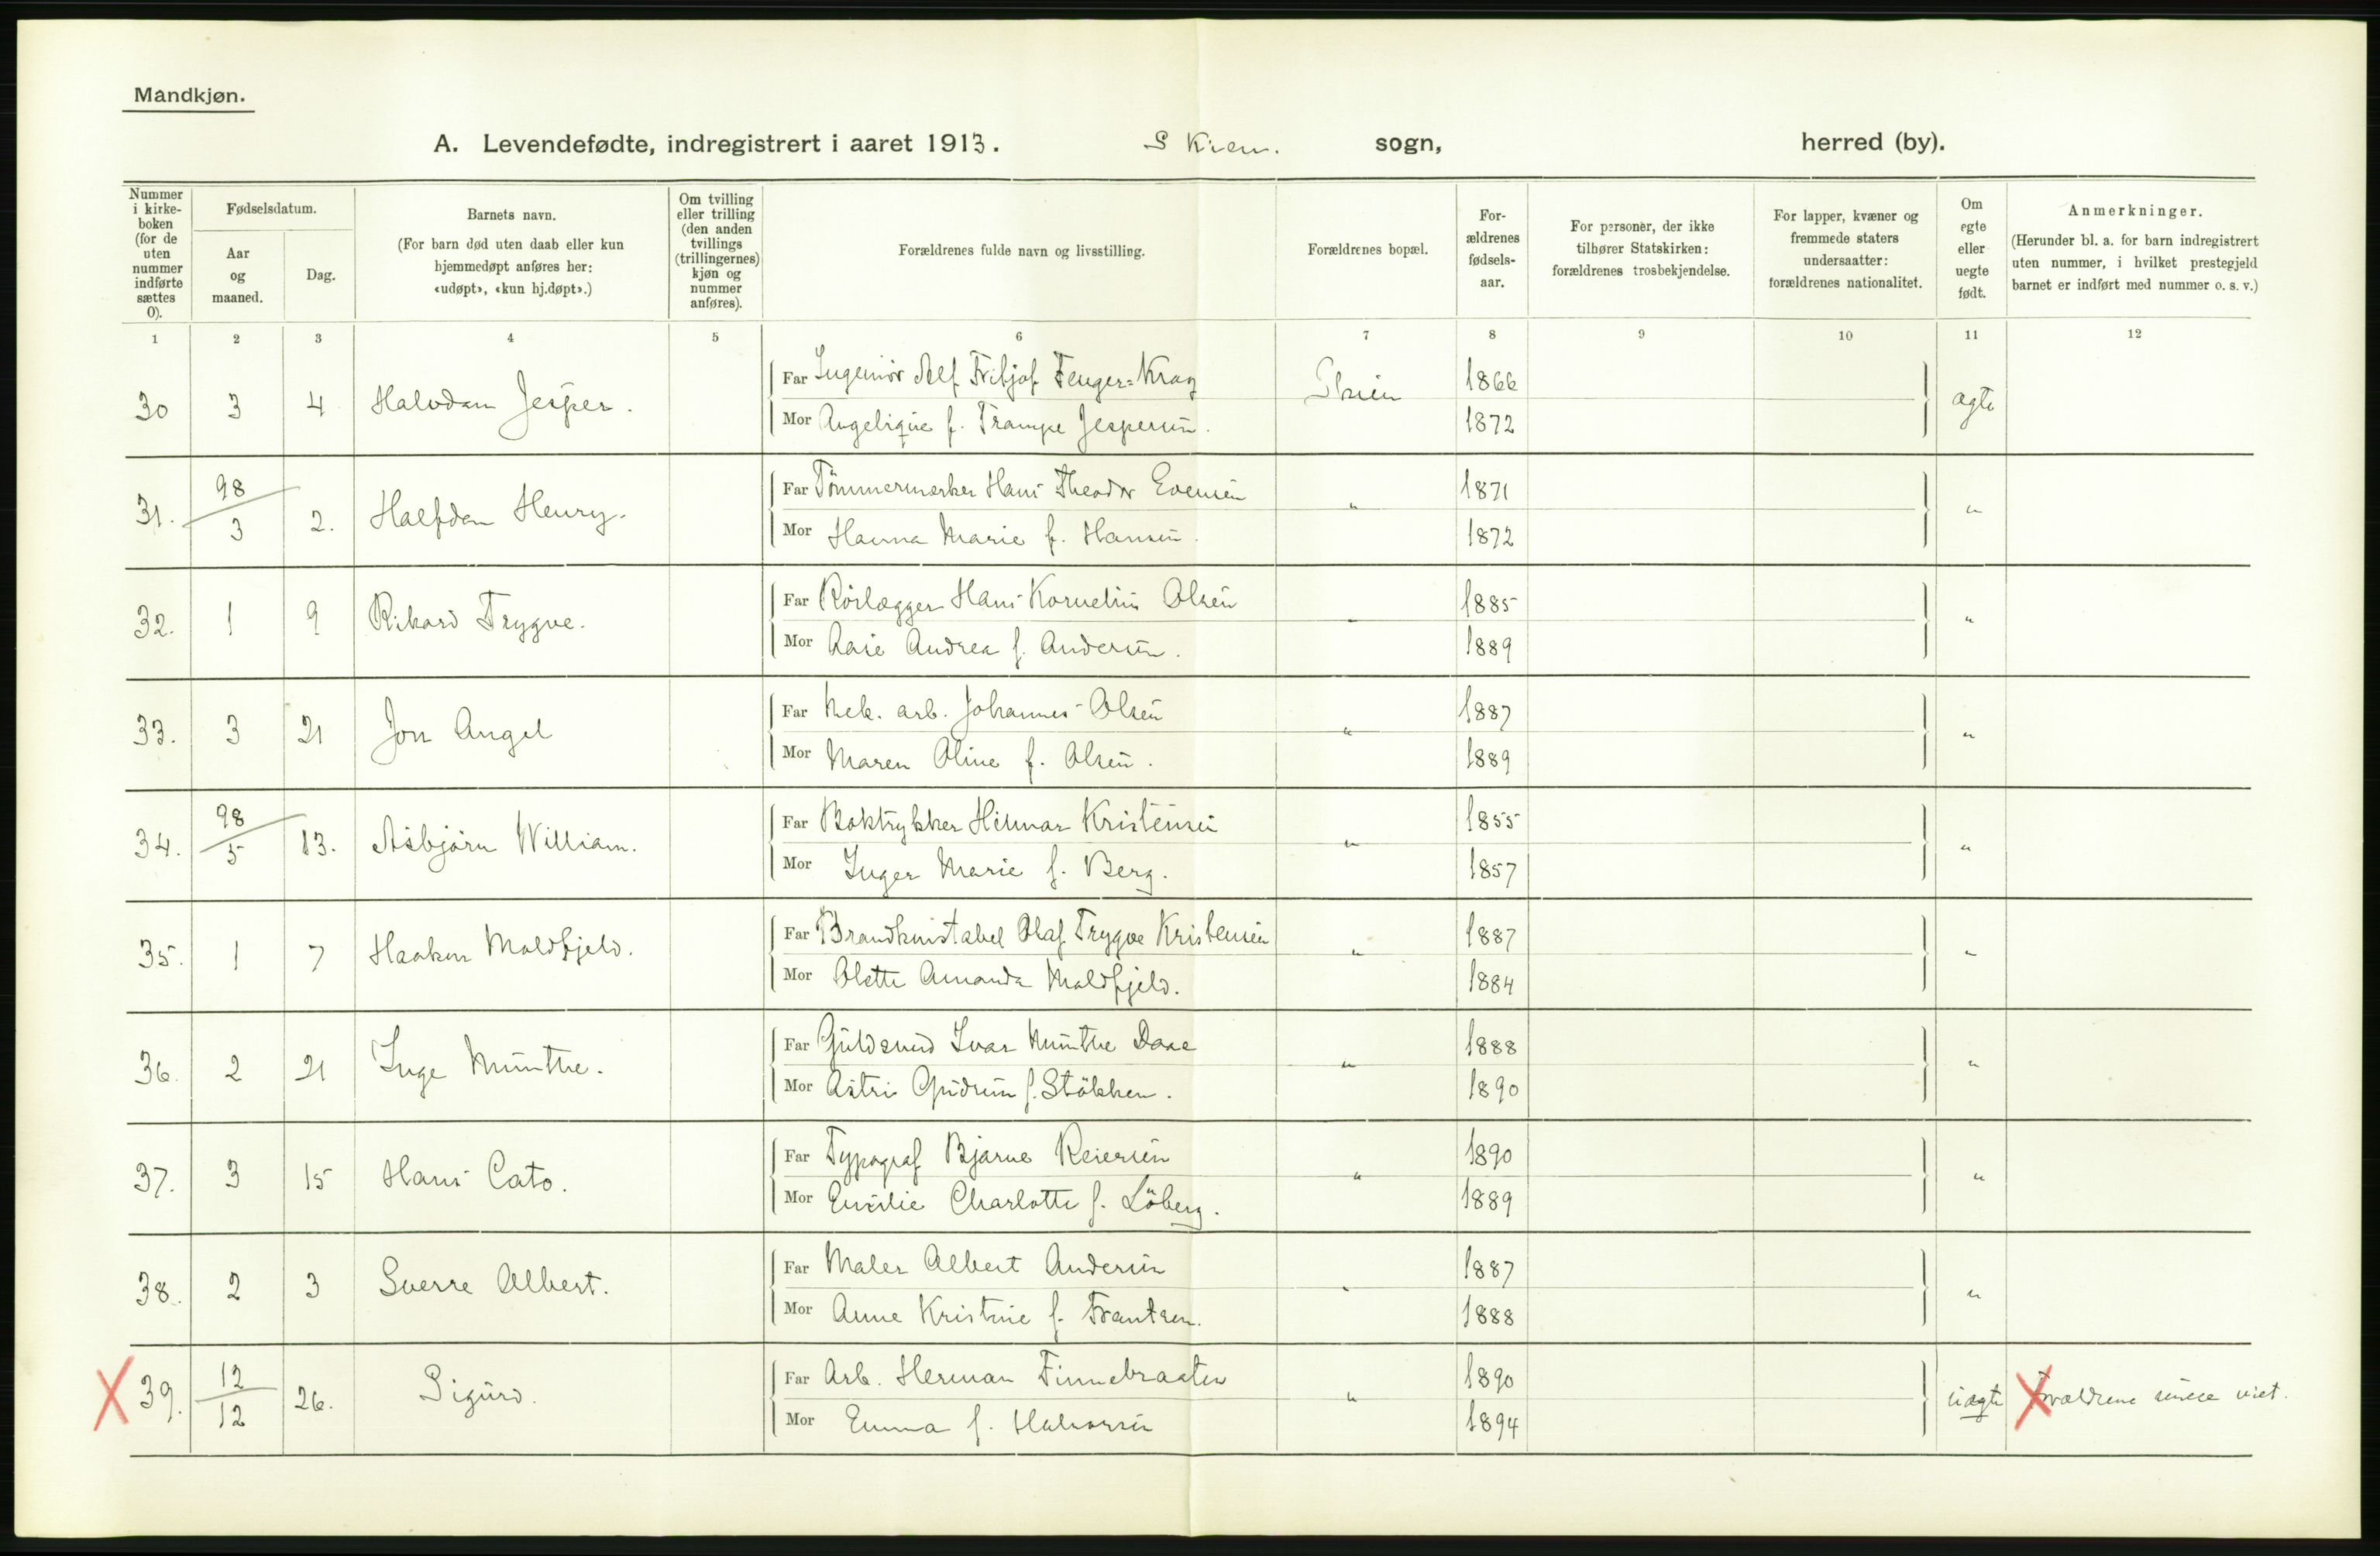 Mandkjøn.
A. Levendefødte, indregistrert i aaret 1913. Skien. sogn, herred (by).
Nummer i kirke-boken (for de uten nummer indførte sættes 0).
Fødselsdatum.
Aar og maaned.
Dag.
Barnets navn.
(For barn død uten daab eller kun hjemmedøpt anføres her: «udøpt», «kun hj.døpt».)
Om tvilling eller trilling (den anden tvillings (trillingernes) kjøn og nummer anføres).
Forældrenes fulde navn og livsstilling.
Forældrenes bopæl.
For-ældrenes fødsels-aar.
For personer, der ikke tilhører Statskirken: forældrenes trosbekjendelse.
For lapper, kvæner og fremmede staters undersaatter: forældrenes nationalitet.
Om egte eller uegte født.
Anmerkninger.
(Herunder bl. a. for barn indregistrert uten nummer, i hvilket prestegjeld barnet er indført med nummer o. s. v.)
1 2 3 4 5 6 7 8 9 10 11 12
Far Ingeniør Alf Fritjof Fenger=Krog Skien 1866
30 3 4 Halvdan Jesper. ægte
Mor Angelique f. Trampe Jespersen. 1872
Far Tömmermerker Hans Theodor Evensen 1871
31. 98/3 2. Halfdan Henry. "  "
Mor Hanna Marie f. Hansen. 1872
Far Rörlægger Hans Kornelius Olsen 1885
32. 1 9 Rikard Trygve. "  "
Mor Aase Andrea f. Andersen. 1889
Far Mek. arb. Johannes Olsen 1887
33. 3 21 Jon Angel "  "
Mor Maren Oline f. Olsen. 1889
Far Boktrykker Hilmar Kristensen 1855
34. 98/5 13. Asbjörn William. "  "
Mor Inger Marie f. Berg. 1857
Far Brandkonstabel Olaf Trygve Kristensen 1887
35. 1 7 Haakon Moldfjeld. "  "
Mor Olette Amanda Moldfjeld. 1884
Far Guldsmed Ivar Munthe Daae 1888
36. 2 21 Inge Munthe. "  "
Mor Astri Gudrun f. Stökken. 1890
Far Typograf Bjarne Reiersen 1890
37. 3 15 Hans Cato. "  "
Mor Emilie Charlotte f. Löberg. 1889
Far Maler Albert Andersen 1887
38. 2 3 Sverre Albert. "  "
Mor Anne Kristine f. Frantzen. 1888
Far Arb. Herman Finnebraaten 1890
X 39. 12/12 26. Sigurd. " uægte X Forældrene senere viet.
Mor Emma f. Halvorsen 1894